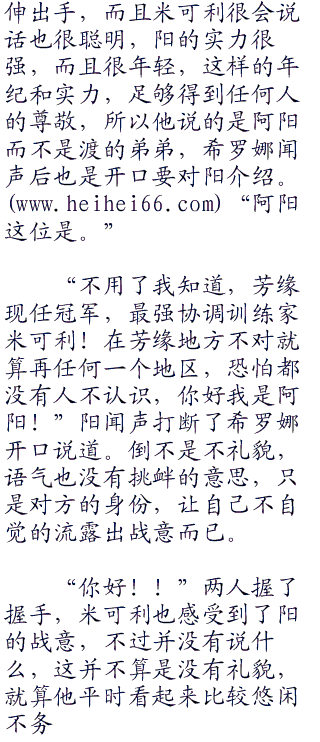 伸出手，而且米可利很会说
话也很聪明，阳的实力很
强，而且很年轻，这样的年
纪和实力，足够得到任何人
的尊敬，所以他说的是阿阳
而不是渡的弟弟，希罗娜闻
声后也是开口要对阳介绍。
(www.heihei66.com)“阿阳
这位是。”
“不用了我知道，芳缘
现任冠军，最强协调训练家
米可利！在芳缘地方不对就
算再任何一个地区，恐怕都
没有人不认识，你好我是阿
阳！”阳闻声打断了希罗娜
开口说道。倒不是不礼貌，
语气也没有挑衅的意思，只
是对方的身份，让自己不自
觉的流露出战意而已。
“你好！！”两人握了
握手，米可利也感受到了阳
的战意，不过并没有说什
么，这并不算是没有礼貌，
就算他平时看起来比较悠闲
不务